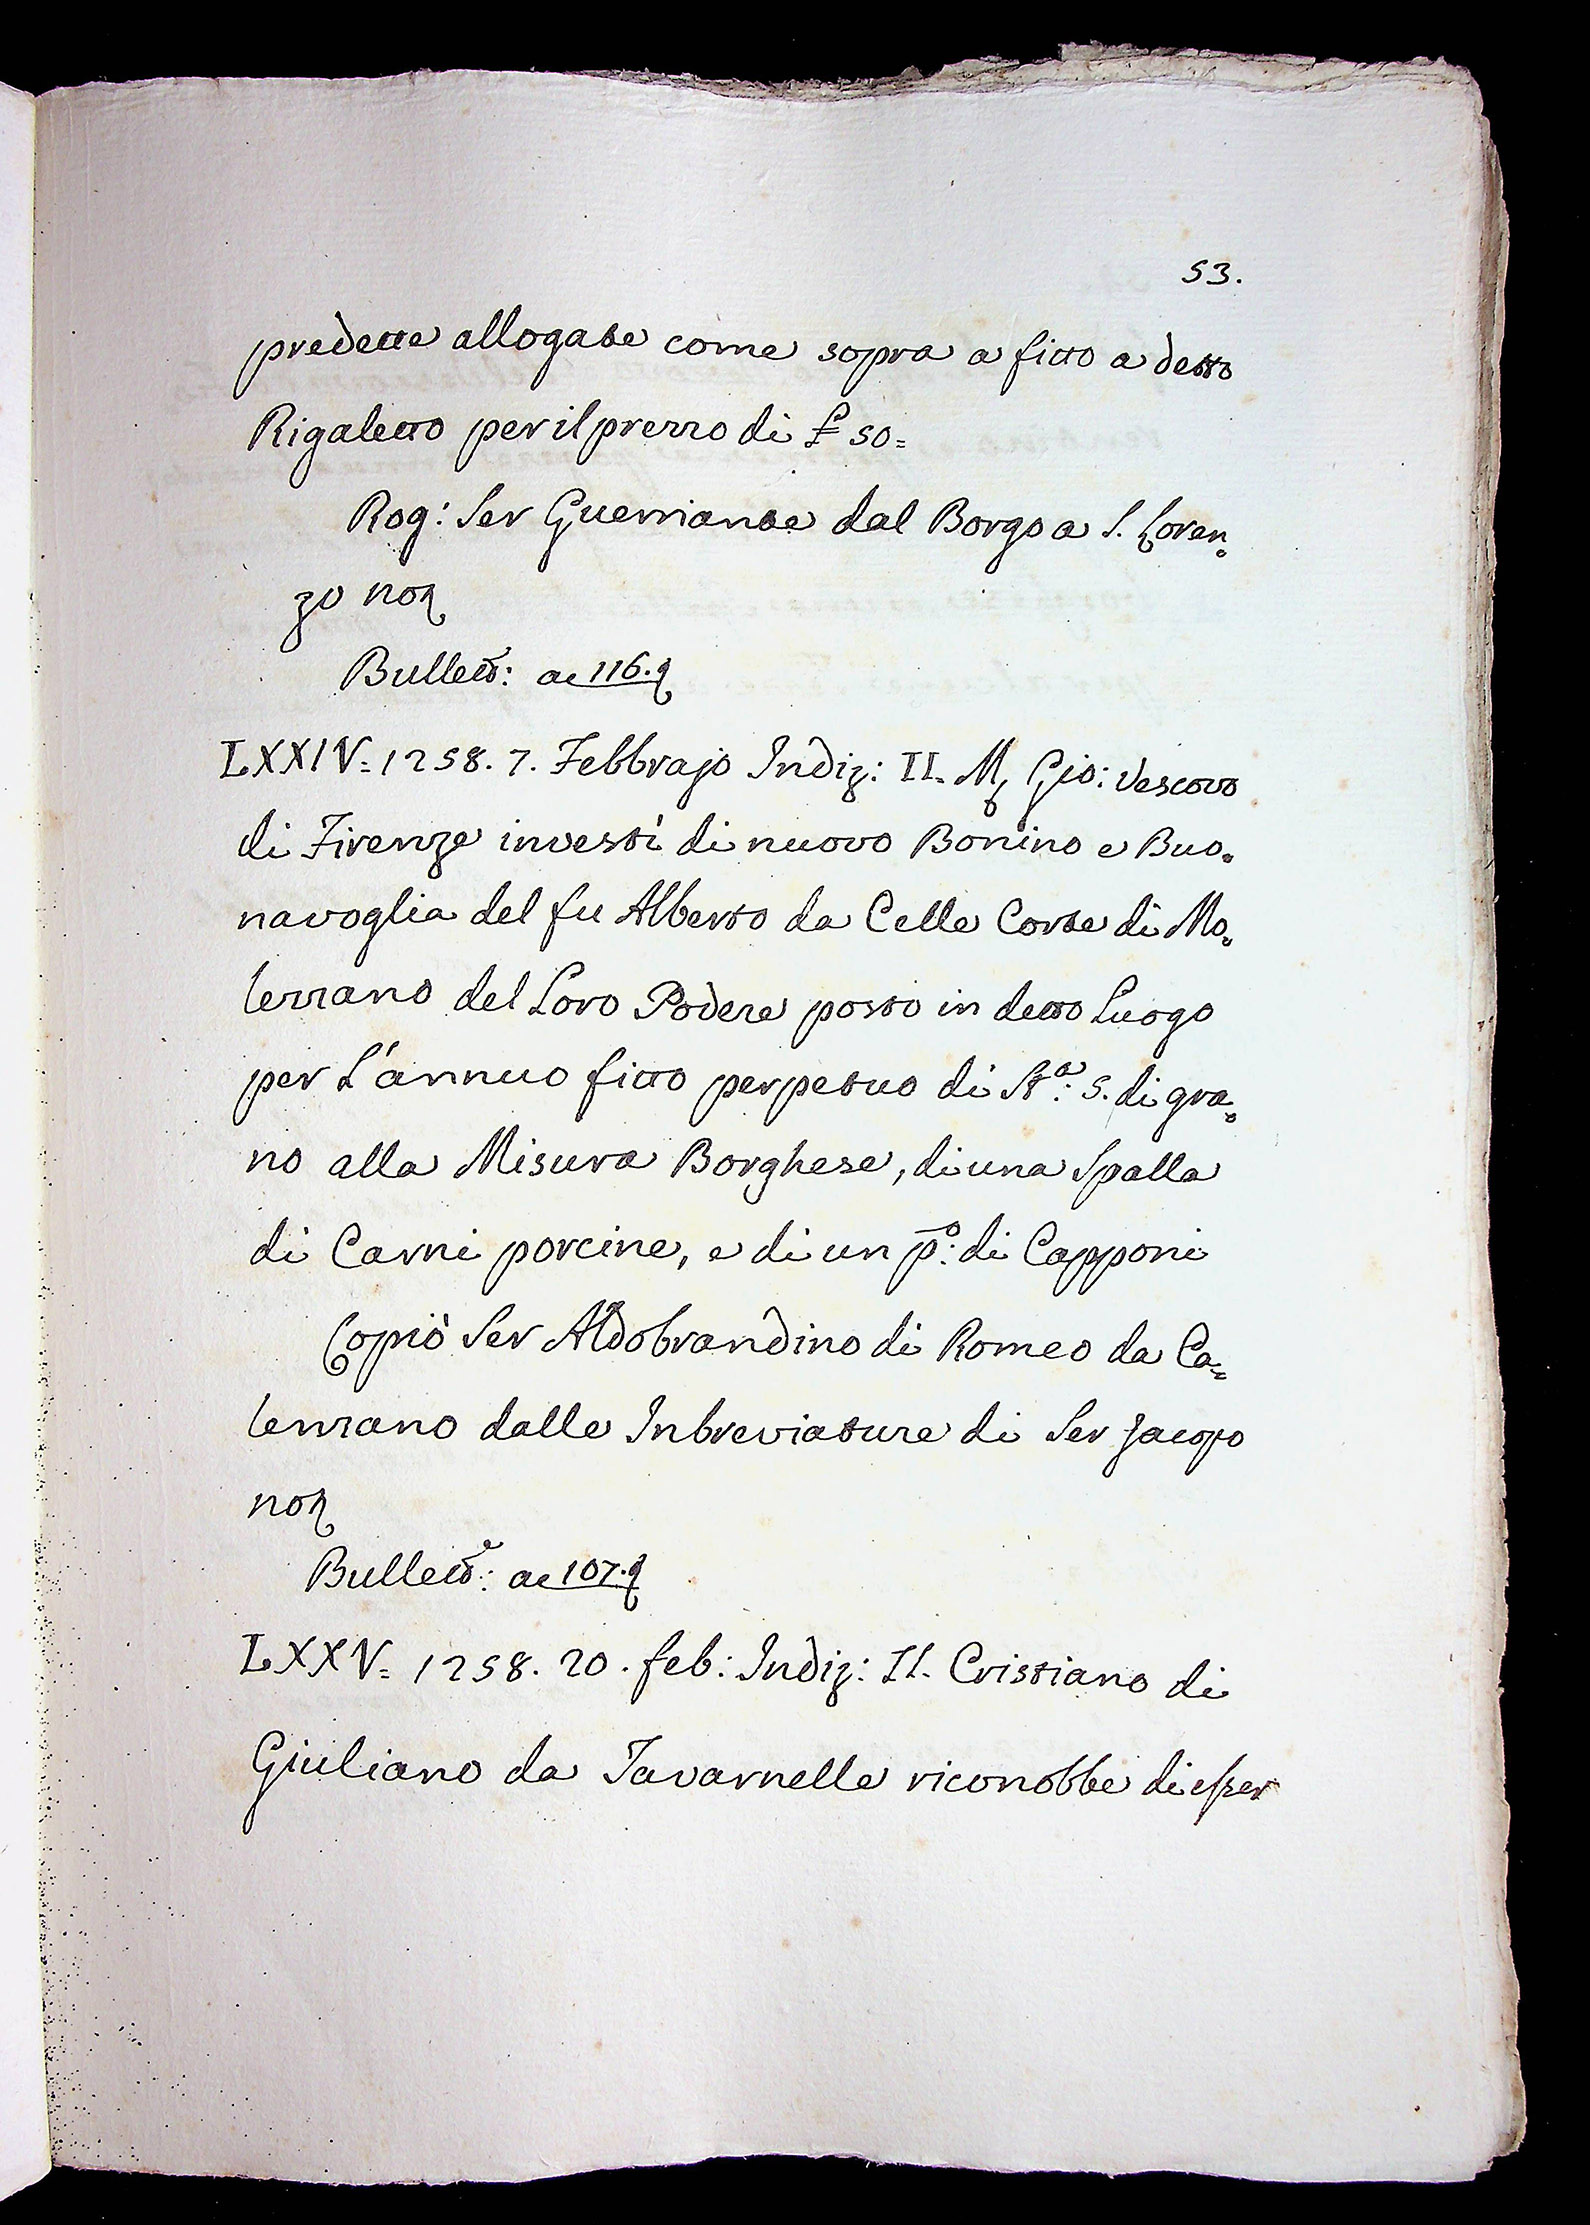 53.
predette allogate come sopra a fitto a detto
Rigaletto per il prezzo di £ 50=
Rog: Ser Guerriante dal Borgo a S. Loren=
zo not
Bullett: ac 116.
LXXIV= 1258. 7. Febbrajo Indiz: II. M. Gio: Vescovo
di Firenze investì di nuovo Bonino e Buo=
navoglia del fu Alberto da Celle Corte di Mo=
lezzano del Loro Podere posto in detto Luogo
per L'annuo fitto perpetuo di Sta: 5. di gra=
no alla Misura Borghese, di una Spalla
di Carni porcine, e di un po: di Capponi
Copiò Ser Aldobrandino di Romeo da Ca=
lenzano dalle Inbreviature di Ser Jacopo
not
Bullett: ac 107.
LXXV= 1258. 20. feb: Indiz: II. Cristiano di
Giuliano da Tavarnelle riconobbe di esser